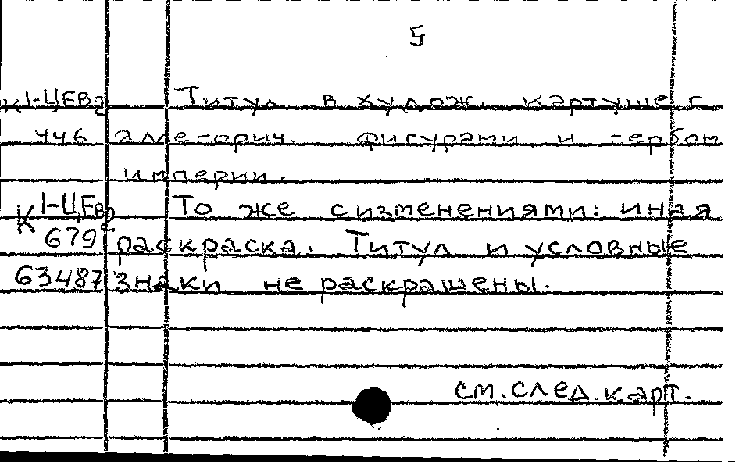 5
К 1-ЦЕв2 Титул в худож. картуше с
446 аллегорич. фигурами и гербом
империи.
К 1-ЦЕв2 То же с изменениями: иная
679 раскраска. Титул и условные
63487 знаки не раскрашены.
см. след. карт.